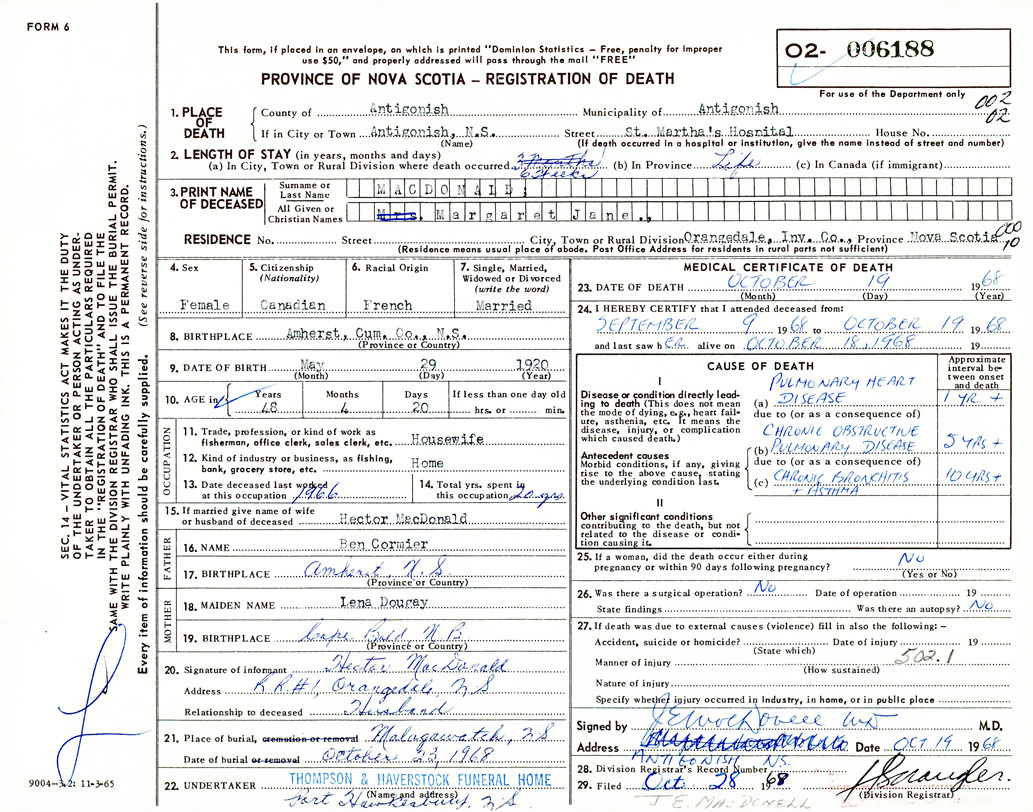 FORM 6
This form, if placed in an envelope, on which is printed "Dominion Statistics – Free, penalty for improper
use $50," and properly addressed will pass through the mail "FREE"
PROVINCE OF NOVA SCOTIA – REGISTRATION OF DEATH
02- 006188
For use of the Department only
002
02
1. PLACE OF DEATH
County of Antigonish Municipality of Antigonish
If in City or Town Antigonish, N.S. Street St. Martha's Hospital House No.
(Name) (If death occurred in a hospital or institution, give the name instead of street and number)
2. LENGTH OF STAY (in years, months and days)
(a) In City, Town or Rural Division where death occurred 6 weeks (b) In Province Life (c) In Canada (if immigrant)
3. PRINT NAME OF DECEASED
Surname or Last Name MACDONALD,
All Given or Christian Names Mrs. Margaret Jane.,
RESIDENCE No. Street City, Town or Rural Division Orangedale, Inv. Co., Province Nova Scotia
(Residence means usual place of abode. Post Office Address for residents in rural parts not sufficient)
000
10
4. Sex Female
5. Citizenship (Nationality) Canadian
6. Racial Origin French
7. Single, Married, Widowed or Divorced (write the word) Married
8. BIRTHPLACE Amherst, Cum. Co., N.S.
(Province or Country)
9. DATE OF BIRTH May 29 1920
(Month) (Day) (Year)
10. AGE in Years 48 Months 4 Days 20 If less than one day old hrs. or min.
OCCUPATION
11. Trade, profession, or kind of work as fisherman, office clerk, sales clerk, etc. Housewife
12. Kind of industry or business, as fishing, bank, grocery store, etc. Home
13. Date deceased last worked at this occupation 1966
14. Total yrs. spent in this occupation 20 yrs.
15. If married give name of wife or husband of deceased Hector MacDonald
FATHER
16. NAME Ben Cormier
17. BIRTHPLACE Amherst, N.S.
(Province or Country)
MOTHER
18. MAIDEN NAME Lena Dougay
19. BIRTHPLACE Cape Bald, N.B
(Province or Country)
20. Signature of informant Hector MacDonald
Address R.R.#1, Orangedale, N S
Relationship to deceased Husband
21. Place of burial, cremation or removal Malagawatch, N S
Date of burial or removal October 23, 1968
22. UNDERTAKER THOMPSON & HAVERSTOCK FUNERAL HOME
(Name and address)
Port Hawkesbury, N.S.
MEDICAL CERTIFICATE OF DEATH
23. DATE OF DEATH OCTOBER 19 1968
(Month) (Day) (Year)
24. I HEREBY CERTIFY that I attended deceased from:
SEPTEMBER 9 1968 to OCTOBER 19 1968
and last saw hER alive on OCTOBER 18, 1968 19
CAUSE OF DEATH
Approximate interval between onset and death
I
Disease or condition directly leading to death (This does not mean the mode of dying, e.g., heart failure, asthenia, etc. It means the disease, injury, or complication which caused death.)
(a) PULMONARY HEART DISEASE 1 YR +
due to (or as a consequence of)
(b) CHRONIC OBSTRUCTIVE PULMONARY DISEASE 5 YRS +
Antecedent causes
Morbid conditions, if any, giving rise to the above cause, stating the underlying condition last.
due to (or as a consequence of)
(c) CHRONIC BRONCHITIS + ASTHMA 10 YRS+
II
Other significant conditions contributing to the death, but not related to the disease or condition causing it.
25. If a woman, did the death occur either during pregnancy or within 90 days following pregnancy? No
(Yes or No)
26. Was there a surgical operation? No Date of operation 19
State findings Was there an autopsy? No
27. If death was due to external causes (violence) fill in also the following: –
Accident, suicide or homicide? Date of injury 19
(State which)
Manner of injury 502.1
(How sustained)
Nature of injury
Specify whether injury occurred in industry, in home, or in public place
Signed by J E MacDonell MD M.D.
Address Date OCT 19 1968
ANTIGONISH N.S.
28. Division Registrar's Record Number
29. Filed Oct 28 1968
(Division Registrar)
J. E. MACDONELL
SEC. 14 – VITAL STATISTICS ACT MAKES IT THE DUTY
OF THE UNDERTAKER OR PERSON ACTING AS UNDER-
TAKER TO OBTAIN ALL THE PARTICULARS REQUIRED
IN THE "REGISTRATION OF DEATH" AND TO FILE THE
SAME WITH THE DIVISION REGISTRAR WHO SHALL ISSUE THE BURIAL PERMIT.
WRITE PLAINLY WITH UNFADING INK. THIS IS A PERMANENT RECORD.
Every item of information should be carefully supplied. (See reverse side for instructions.)
9004-3.2: 11-3-65